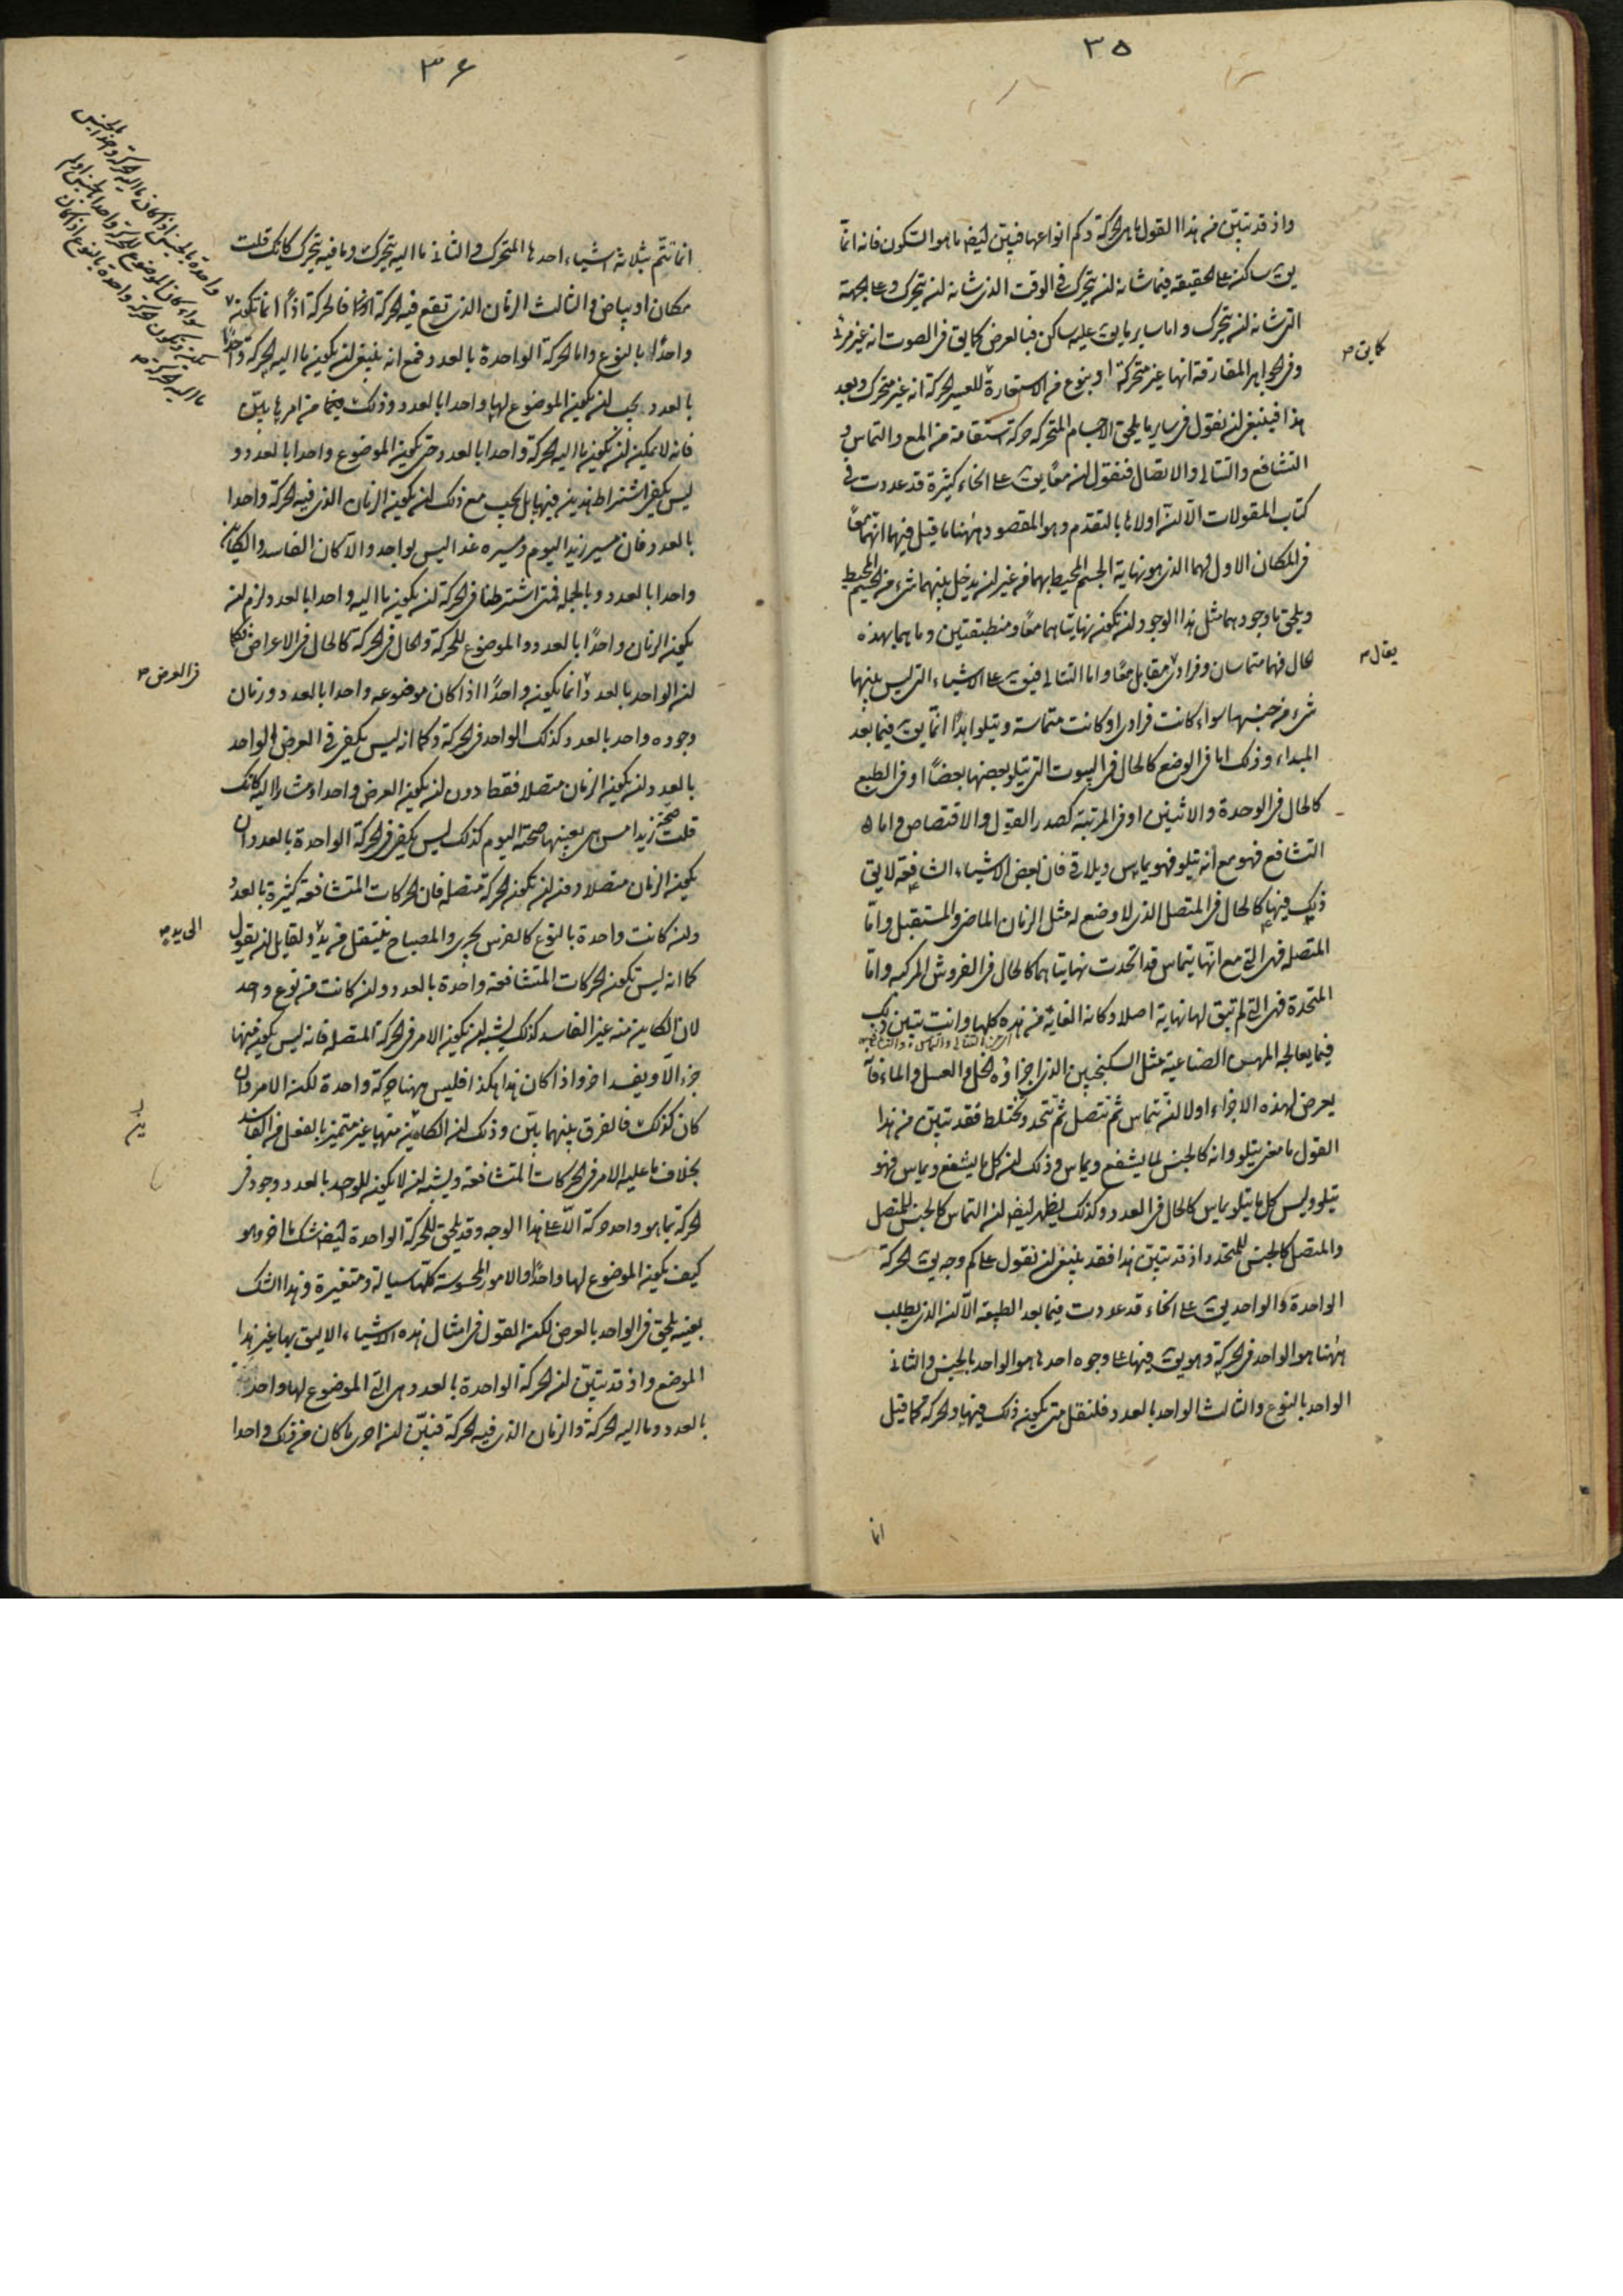 ٣٥
واذ قد تبين من هذا القول ما هى الحركة وكم انواعها فنبين ايضا ما هو السكون فانه انما
يق ساكن على الحقيقة فيما شانه ان يتحرك فى الوقت الذى شانه ان يتحرك وعلى الجهة
التى شانه ان يتحرك واما ساير ما يق عليه ساكن فبالعرض كما يق فى الصوت انه غير مرئى
كما يق
وفى الجواهر المفارقة انها غير متحركة او بنوع من الاستعارة للعسير الحركة انه غير متحرك وبعد
هذا فينبغى ان نقول فى ساير ما يلحق الاجسام المتحركة حركة استقامة من المع والتماس و
التشافع والتتالى والاتصال فنقول ان معا يق على انحاء كثيرة قد عددت فى
كتاب المقولات الا ان اولاها بالتقدم وهو المقصود ههنا ما قيل فيهما انهما معا
فى المكان الاول لهما الذى هو نهاية الجسم المحيط بهما من غير ان يدخل بينهما شىء من الجسم المحيط
ويلحق ما وجودهما مثل هذا الوجود ان تكون نهايتاهما معا ومنطبقتين وما هما بهذه
يقال
الحال فهما متماسان وفرادى مقابل معا واما التتالى فيق على الاشياء التى ليس بينها
شىء من جنسها سواء كانت فرادى او كانت متماسة ويتلو ابدا انما يق فيما بعد
المبداء وذلك اما فى الوضع كالحال فى البيوت التى يتلو بعضها بعضا او فى الطبع
كالحال فى الوحدة والاثنين او فى المرتبة كصدر القول والاقتصاص واما
التشافع فهو مع انه يتلو فهو يماس ويلاقى فان بعض الاشياء الشافعة لا يق
ذلك فيها كالحال فى المتصل الذى لا وضع له مثل الزمان الماضى والمستقبل واما
المتصلة فهى التى مع انها يتماس قد اتحدت نهايتاهما كالحال فى الفروش المركبه واما
المتحدة فهى التى لم تبق لها نهاية اصلا وكانه الغاية من هذه كلها وانت تبين ذلك
فيما يعالجه المهن الصناعية مثل السكنجبين الذى اجزاؤه الخل والعسل والماء فانه
يعرض لهذه الاجزاء اولا ان تتماس ثم تتصل ثم تتحد وتختلط فقد تبين من هذا
القول ما معنى يتلو وانه كالجنس لما يشفع ويماس وذلك ان كل ما يشفع ويماس فهو
يتلو وليس كل ما يتلو يماس كالحال فى العدد وكذلك يظهر ايضا ان التماس كالجنس للمتصل
والمتصل كالجنس للمتحد واذ قد تبين هذا فقد ينبغى ان نقول على كم وجه يق الحركة
الواحدة والواحد يق على انحاء قد عددت فيما بعد الطبيعة الا ان الذى يطلب
ههنا هو الواحد فى الحركة وهو يق فيها على وجوه احدها هو الواحد بالجنس والثانى
الواحد بالنوع والثالث الواحد بالعدد فلنقل متى يكون ذلك فيها والحركة كما قيل
انما
٣٦
انما تتم بثلاثه اشياء احدها المتحرك والثانى ما اليه يتحرك وما فيه يتحرك كانك قلت
مكان او بياض والثالث الزمان الذى تقع فيه الحركة فالحركة اذا انما تكون
واحدة بالجنس اذا كان ما اليه الحركة واحدا بالجنس
سواء كان الموضوع للحركة واحدا بالجنس او لم
يكن وتكون الحركة واحدة بالنوع اذا كان
ما اليه الحركة
واحدا بالنوع واما الحركة الواحدة بالعدد فمع انه ينبغى ان يكون ما اليه الحركة واحدا
بالعدد يجب ان يكون الموضوع لها واحدا بالعدد وذلك من امرها بين
فانه لا يمكن ان يكون ما اليه الحركة واحدا بالعدد حتى يكون الموضوع واحدا بالعدد و
ليس يكفى اشتراط هذين فيها بل يجب مع ذلك ان يكون الزمان الذى فيه الحركة واحدا
بالعدد فان مسير زيد اليوم ومسيره غدا ليس بواحد والا كان الفاسد والكاين
واحدا بالعدد وبالجملة فمتى اشترطنا فى الحركة ان يكون ما اليه واحدا بالعدد لزم ان
يكون الزمان واحدا بالعدد والموضوع للحركة والحال فى الحركة كالحال فى الاعراض فكما
ان الواحد بالعدد انما يكون واحدا اذا كان موضوعه واحدا بالعدد وزمان
فى العرض
وجوده واحد بالعدد كذلك الواحد فى الحركة وكما انه ليس يكفى فى العرض الواحد
بالعدد ان يكون الزمان متصلا فقط دون ان يكون العرض واحدا ومشارا اليه كانك
قلت صحة زيد امس هى بعينها صحة اليوم كذلك ليس يكفى فى الحركة الواحدة بالعدد ان
يكون الزمان متصلا دون ان تكون الحركة متصلة فان الحركات المتشافعة كثيرة بالعدد
وان كانت واحدة بالنوع كالفرس يجرى والمصباح ينتقل من يد ولقايل ان يقول
الى يد
كما انه ليس تكون الحركات المتشافعة واحدة بالعدد وان كانت من نوع واحد
لان الكاين منه غير الفاسد كذلك يشبه ان يكون الامر فى الحركة المتصلة فانه ليس يكون فيها
جزء الا ويفسد اخر واذا كان هذا هكذا فليس ههنا حركة واحدة لكن الامر وان
كان كذلك فالفرق بينهما بين وذلك ان الكاين منها غير متميز بالفعل من الفاسد
بخلاف ما عليه الامر فى الحركات المتشافعة ويشبه ان لا يكون للواحد بالعدد وجود فى
الحركة بما هو واحد حركة الا على هذا الوجه وقد يلحق للحركة الواحدة ايضا شك ما اخر وهو
كيف يكون الموضوع لها واحدا والامور المحسوسة كلها سيالة ومتغيرة وهذا الشك
بعينه يلحق فى الواحد بالعرض لكن القول فى امثال هذه الاشياء الاليق بها غير هذا
الموضع واذ قد تبين ان الحركة الواحدة بالعدد هى التى الموضوع لها واحد
بالعدد وما اليه الحركة والزمان الذى فيه الحركة فبين ان احرى ما كان من ذلك واحدا